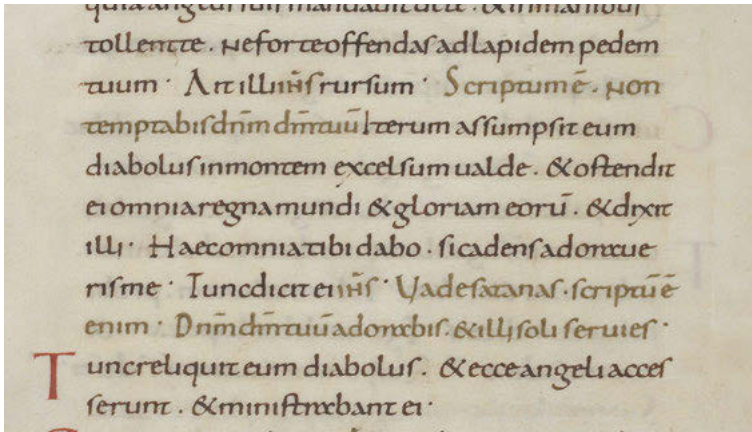 quia angelis suis mandavit de te. & in manibus
tollent te. Ne forte offendas ad lapidem pedem
tuum. Ait illi ih̅s rursum. Scriptum ē. Non
temptabis dn̅m dm̅ tuū Iterum assumpsit eum
diabolus in montem excelsum ualde. & ostendit
ei omnia regna mundi & gloriam eorū. & dixit
illi. Haec omnia tibi dabo. si cadens adoraue
risme. Tunc dicit ei ih̅s. Uade satanas. scriptū ē
enim. Dn̅m dm̅ tuū adorabis. & illi soli seruies.
Tunc reliquit eum diabolus. & ecce angeli acces
serunt. & ministrabant ei.